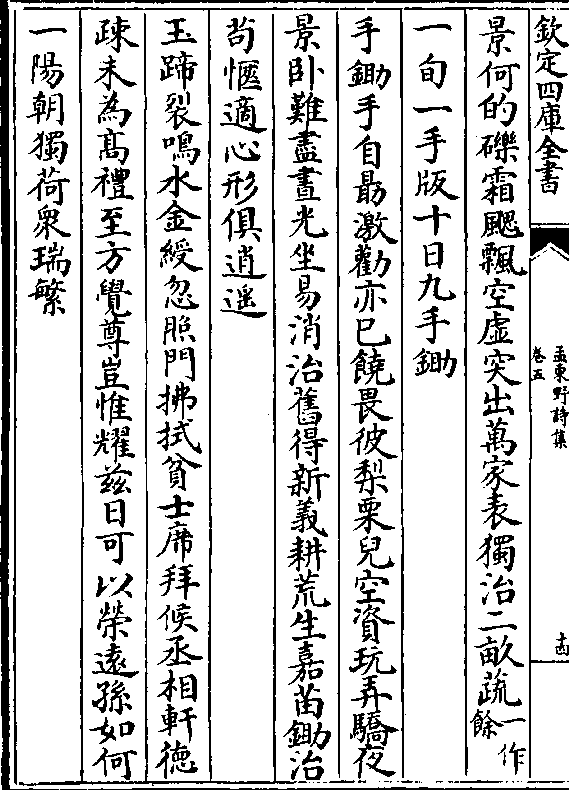 欽定四庫全書
孟東野詩集
卷五
十四
景何的礫霜颸飄空虛突出萬家表獨治二畝蔬一作餘
一旬一手版十日九手鋤
手鋤手自勗激勸亦已饒畏彼梨栗兒空資玩弄驕夜
景卧難盡晝光坐易消治舊得新義耕荒生嘉苗鋤治
茍愜適心形俱逍遥
玉蹄裂鳴水金綬忽照門拂拭貧士席拜候丞相軒德
疎未為髙禮至方覺尊豈惟耀兹日可以榮遠孫如何
一陽朝獨荷衆瑞繁